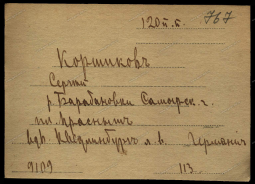 120 п.п. 767
Коршиковъ
Сергѣй
р. Барабановки Самарск. г.
пл. Красныт
Кведлинбургъ л.в. Германія
9109 113